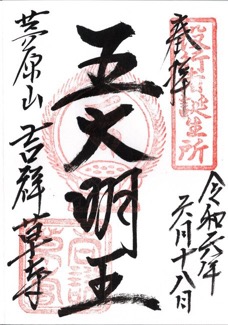 役行者誕生所
奉拝
令和六年
六月十八日
五大明王
茅原山 吉祥草寺